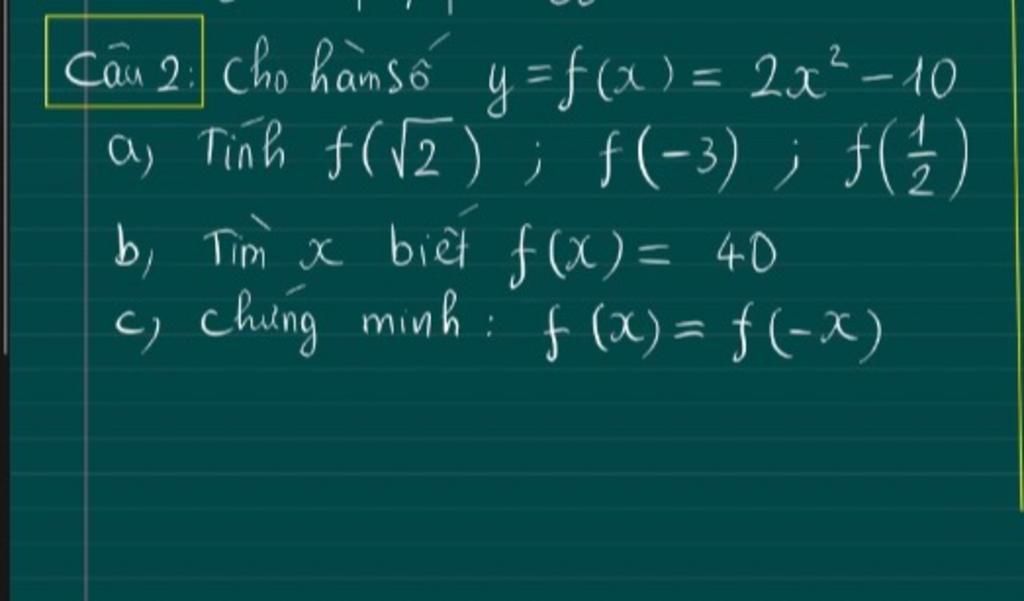 Câu 2: Cho hàm số y = f(x) = 2x² - 10
a, Tính f(√2) ; f(-3) ; f(1/2)
b, Tìm x biết f(x) = 40
c, Chứng minh : f(x) = f(-x)